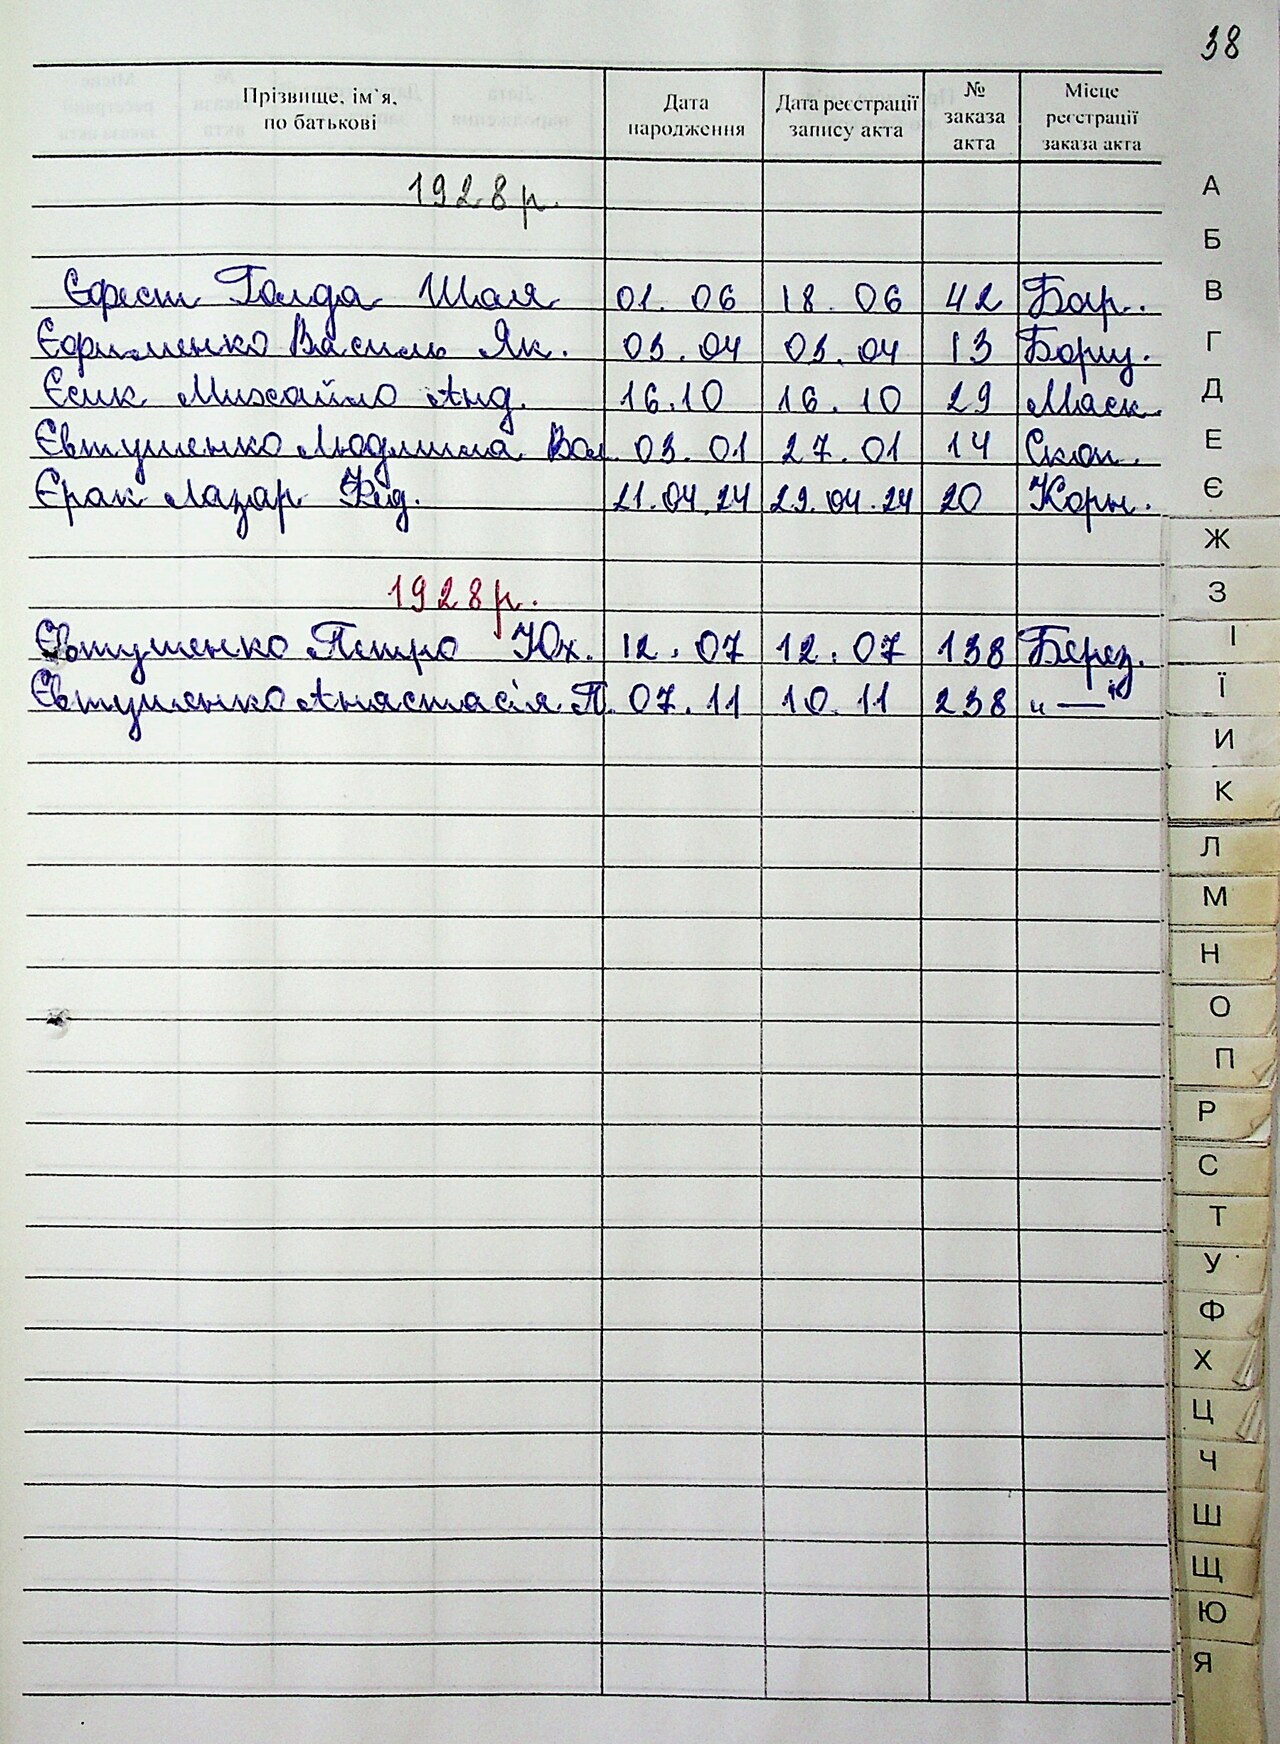 38
Прізвище, ім`я, по батькові Дата народження Дата реєстрації запису акта № заказа акта Місце реєстрації заказа акта
1928р.
Єфест Голда Шоля 01.06 18.06 42 Бар.
Єфименко Василь Як. 03.04 03.04 13 Борщ.
Єсик Михайло Анд. 16.10 16.10 29 Маск.
Євтушенко Людмила Вол 03.01 27.01 14 Скоп.
Єрак Лазар Фед. 21.04.24 29.04.24 20 Корн.
1928р.
Євтушенко Петро Юх. 12.07 12.07 138 Берез.
Євтушенко Анастасія П. 07.11 10.11 238 "—"
А
Б
В
Г
Д
Е
Є
Ж
З
І
Ї
И
К
Л
М
Н
О
П
Р
С
Т
У
Ф
Х
Ц
Ч
Ш
Щ
Ю
Я